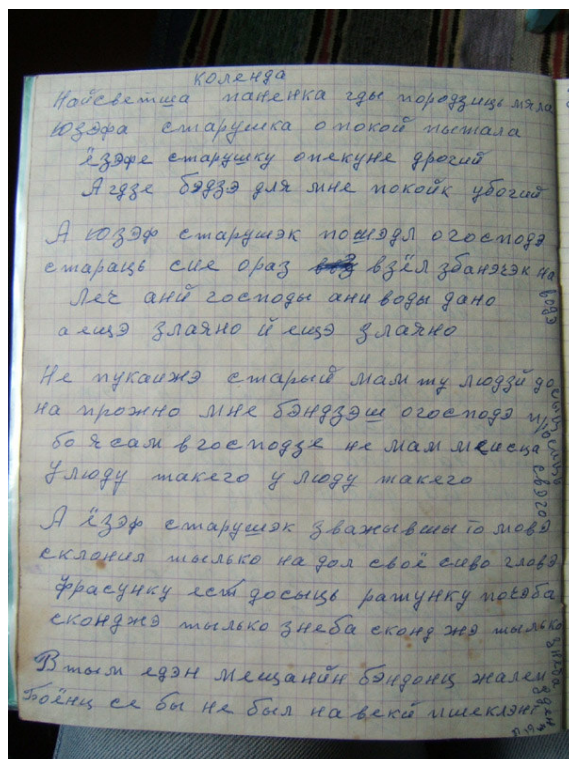 коленда
Найсветша паненка гды породзиць мяла
Юзэфа старушка о покой пытала
ёзэфе старушку опекуне дрогий
А гдзе бэдзэ для мне покойк убогий
А Юзэф старушэк пошэдл о господэ
стараць сие ораз взёл збанэчэк на водэ
Леч аний господы ани воды дано
а ещэ злаяно й ещэ злаяно
Не пукаижэ старый мам ту людзй досыць
на прожно мне бэндзэш о господэ
бо я сам в господзе не мам меисца свэго
У люду такего у люду такего
А ёзэф старушэк зважывшы то мовэ
склонил тылько на дол своё сиво гловэ
фрасунку ест досыць ратунку почэба
сконджэ тылько з неба сконд жэ тылько з неба
В тым едэн мещанйн бэндонц жалем
Боёнц се бы не был на векй пшеклэнт